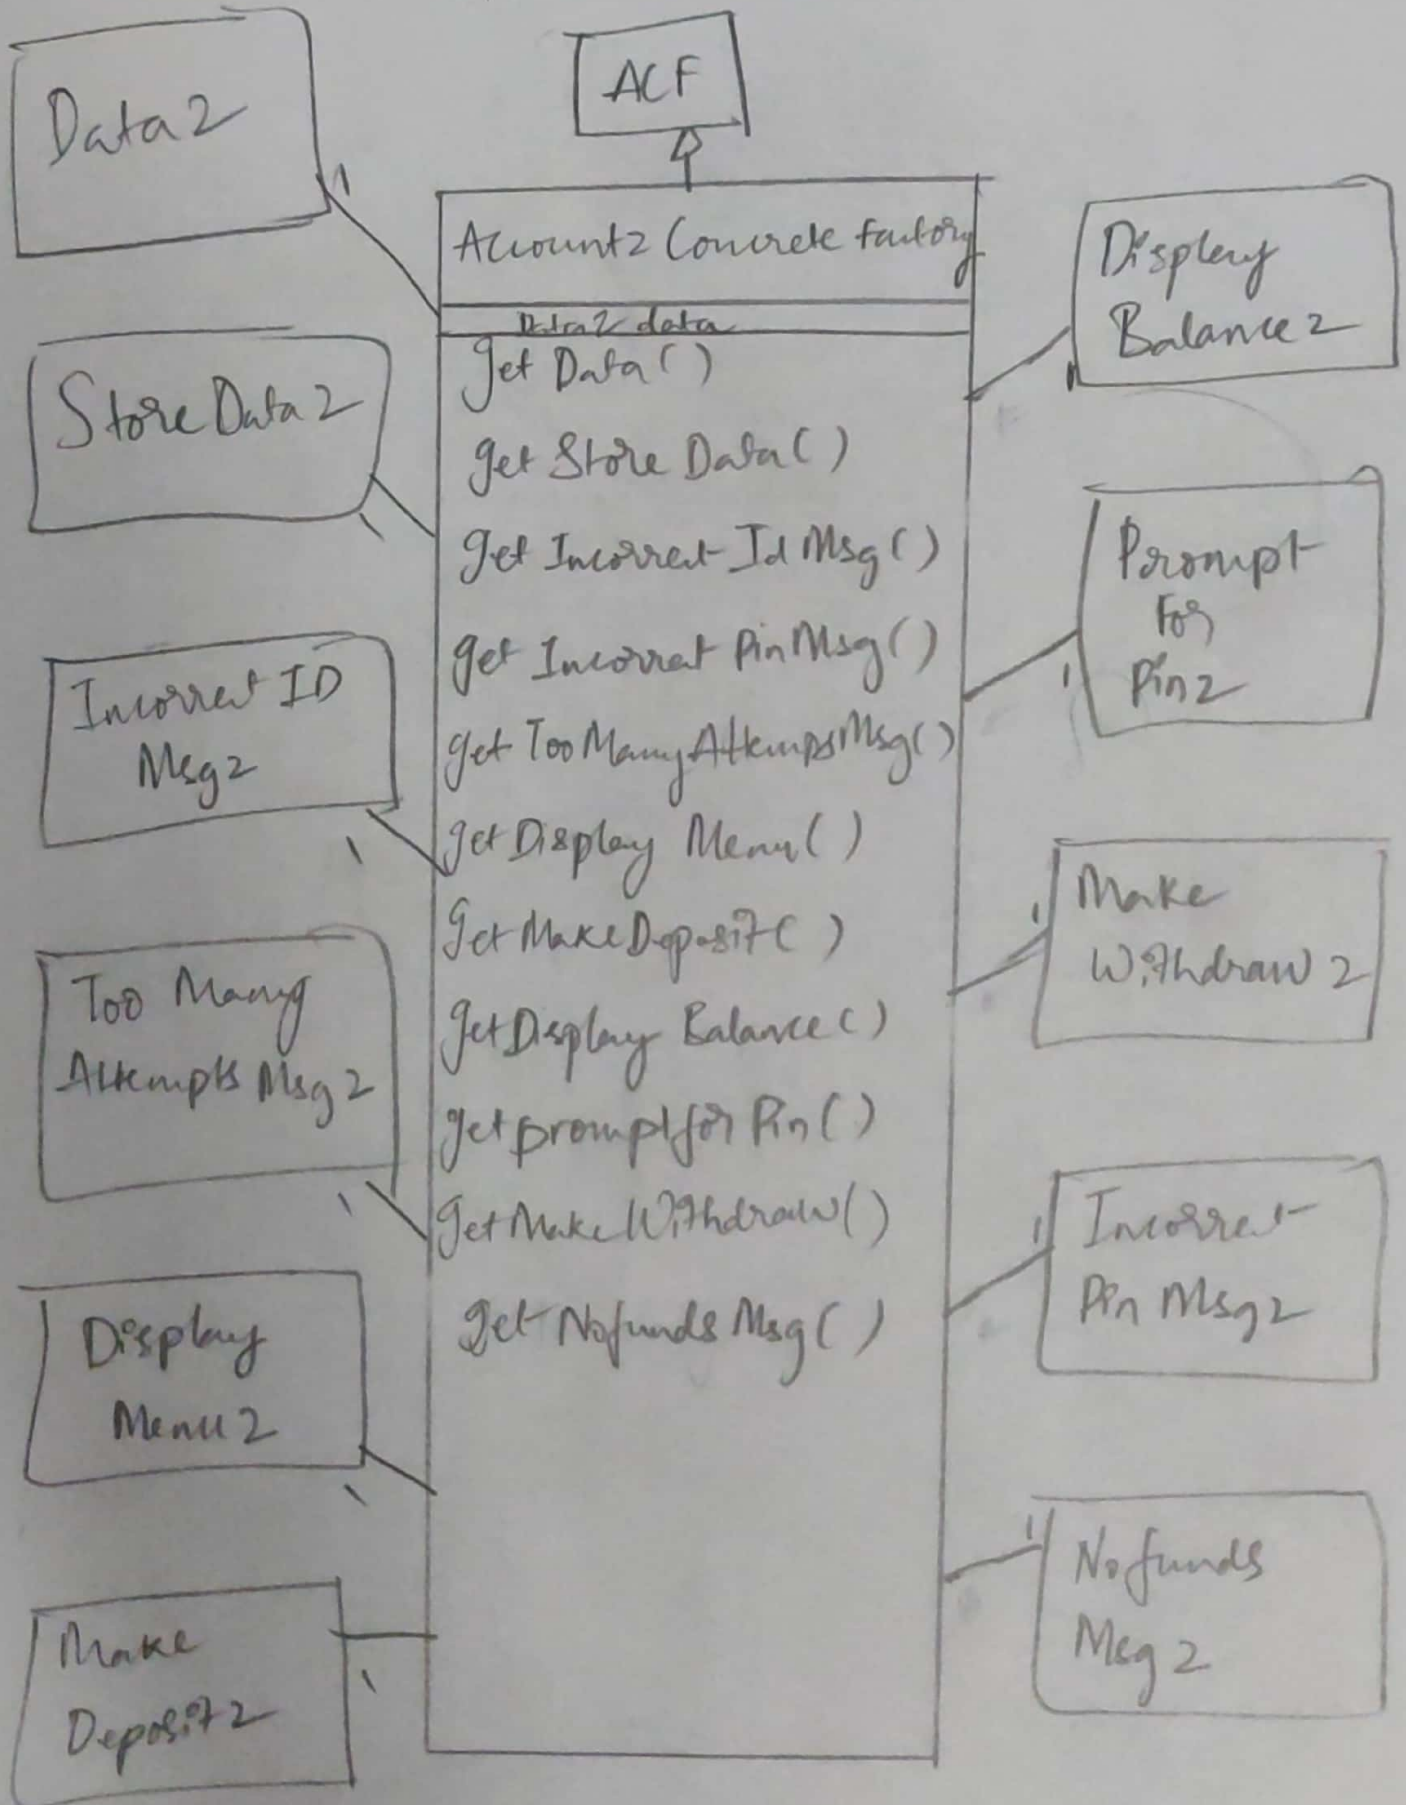 ACF
Data2
Account2 Concrete factory
Data2 data
get Data()
get Store Data()
get Incorrect Id Msg()
get Incorrect Pin Msg()
get Too Many Attemps Msg()
get Display Menu()
get Make Deposit()
get Display Balance()
get prompt for Pin()
get Make Withdraw()
get Nofunds Msg()
Store Data2
Incorrect ID
Msg2
Too Many
Attempts Msg2
Display
Menu2
Make
Deposit2
Display
Balance2
Prompt
For
Pin2
Make
Withdraw2
Incorrect
Pin Msg2
Nofunds
Msg2
1
1
1
1
1
1
1
1
1
1